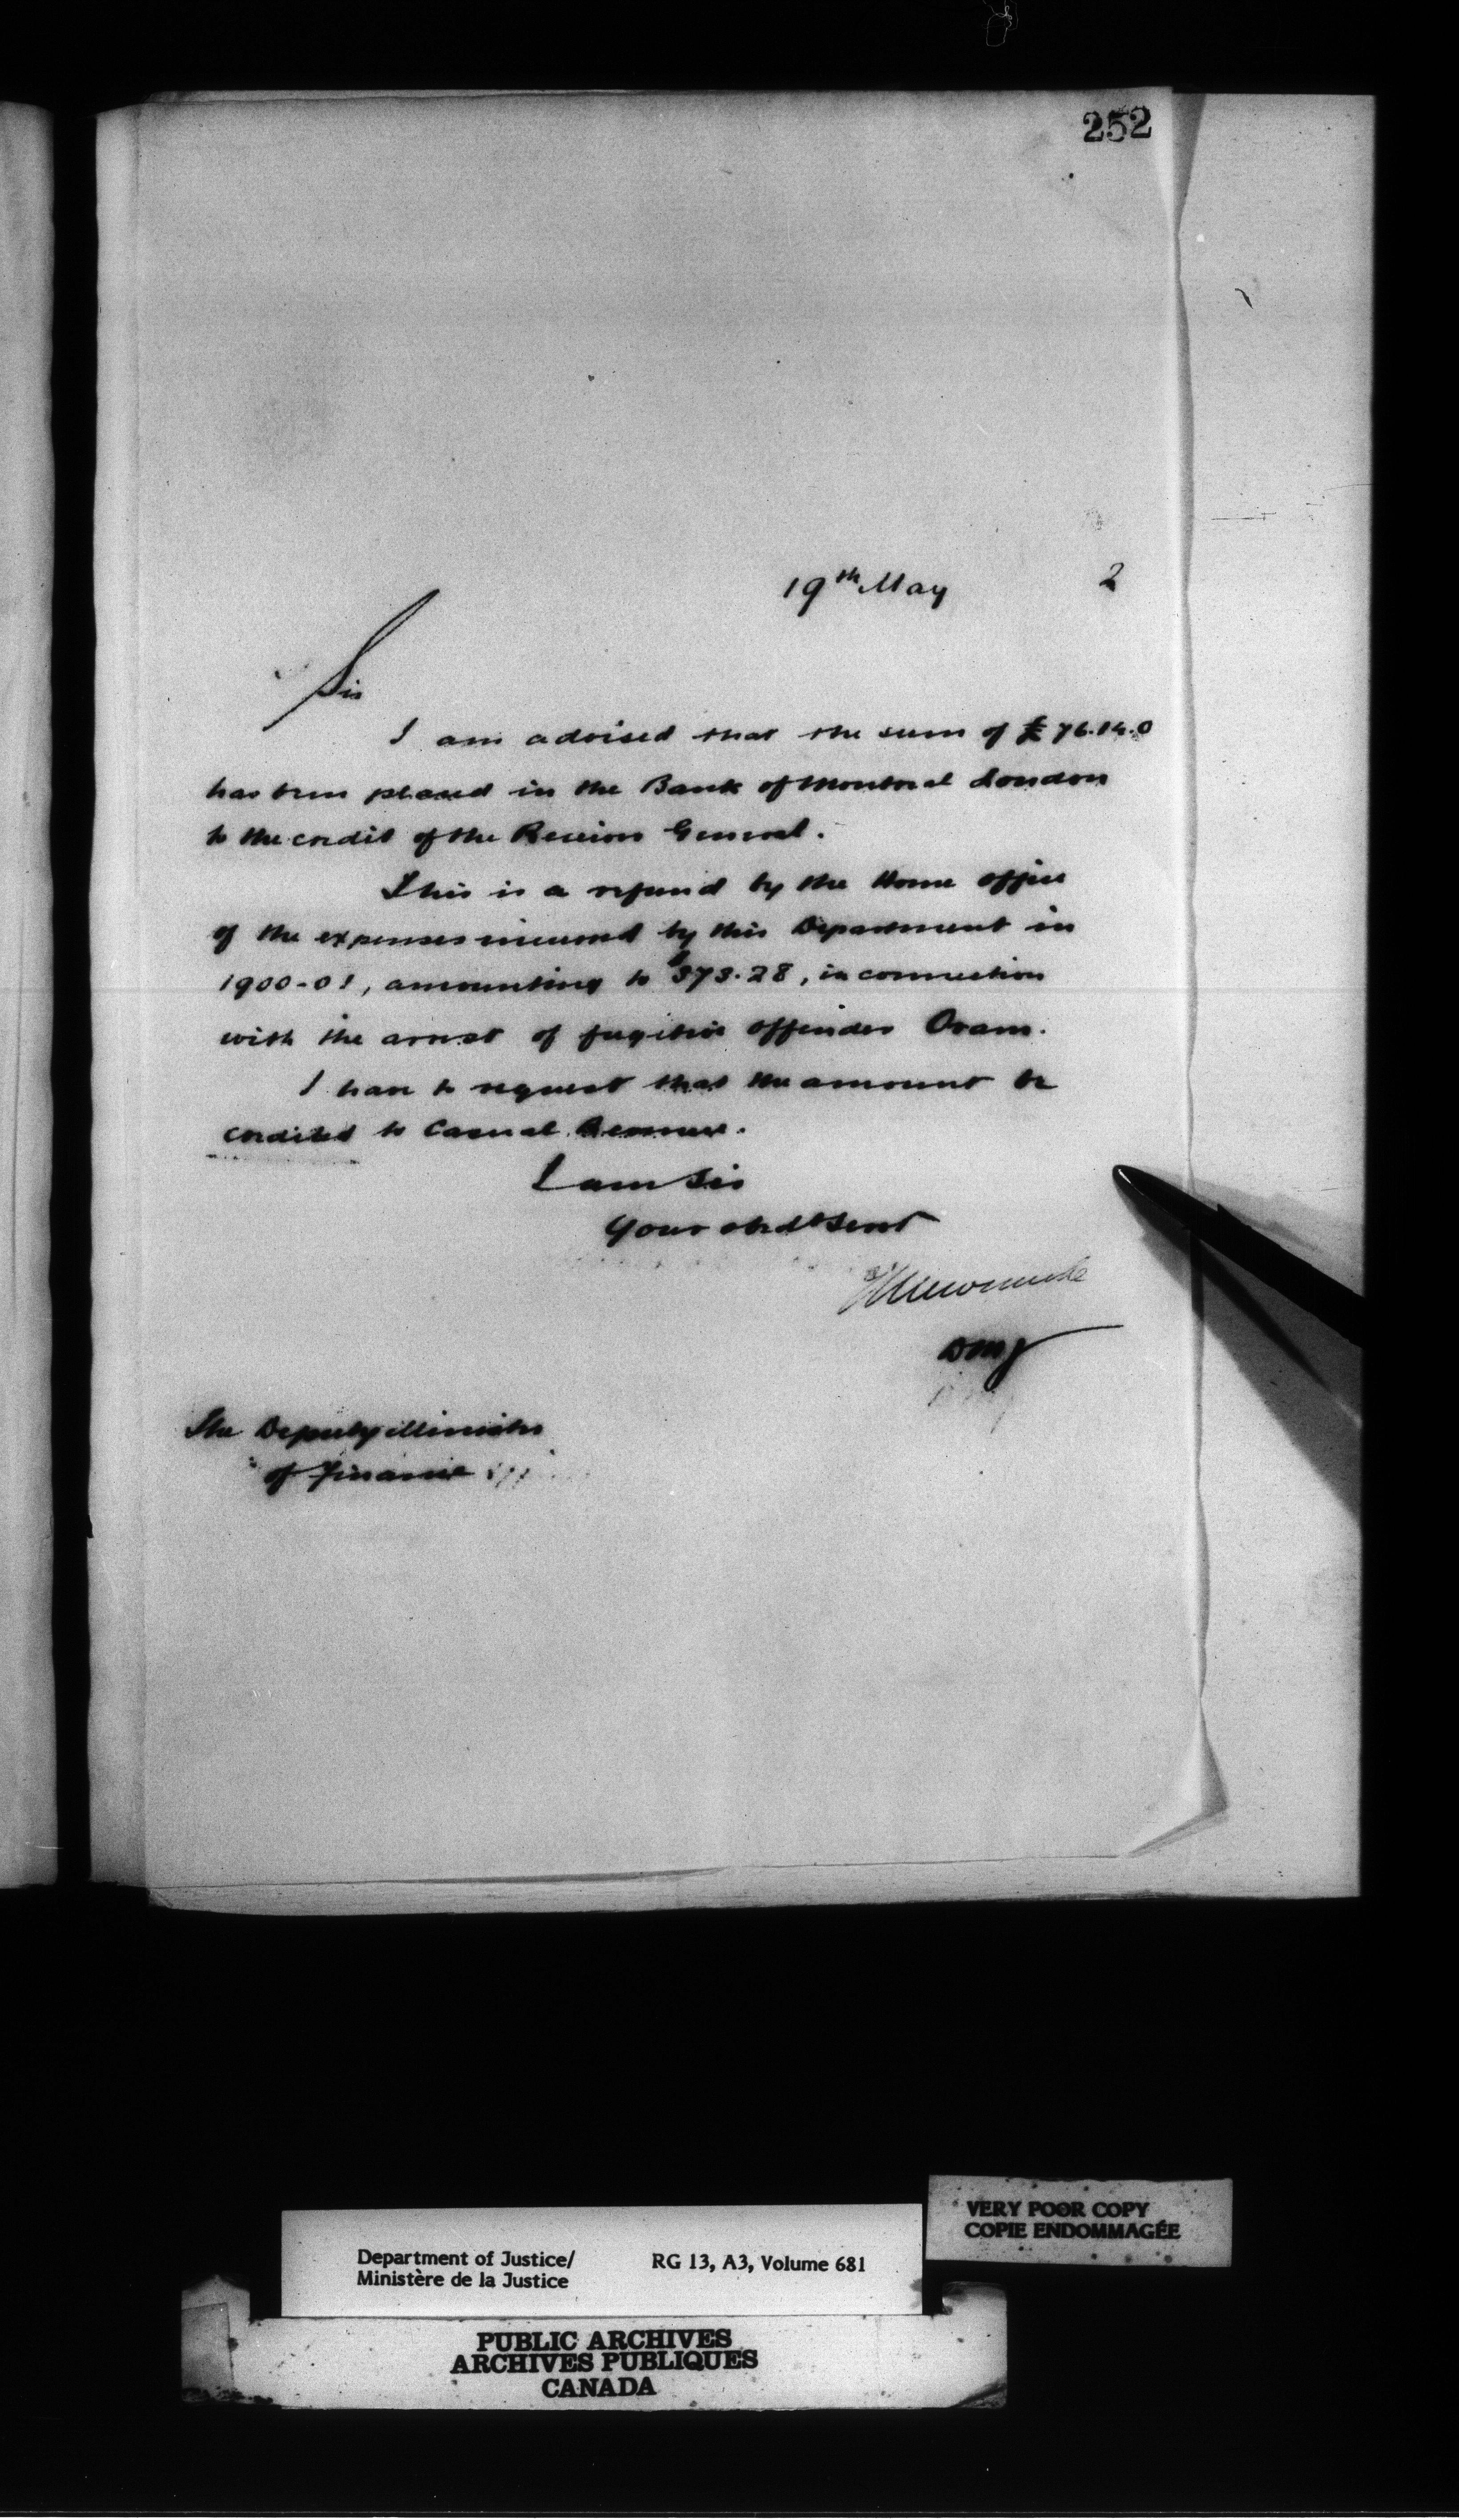 252
19th May 2
Sir
I am advised that the sum of £76.14.0
has been placed in the Bank of Montreal London
to the credit of the Receiver General.
This is a refund by the Home Office
of the expenses incurred by this Department in
1900-01, amounting to $373.28, in connection
with the arrest of fugitive offender Oram.
I have to request that the amount be
credited to Casual Revenue.
I am Sir
Your obdt Servt
E L Newcombe
DMJ
The Deputy Minister
of Finance
VERY POOR COPY
COPIE ENDOMMAGÉE
Department of Justice/ RG 13, A3, Volume 681
Ministère de la Justice
PUBLIC ARCHIVES
ARCHIVES PUBLIQUES
CANADA